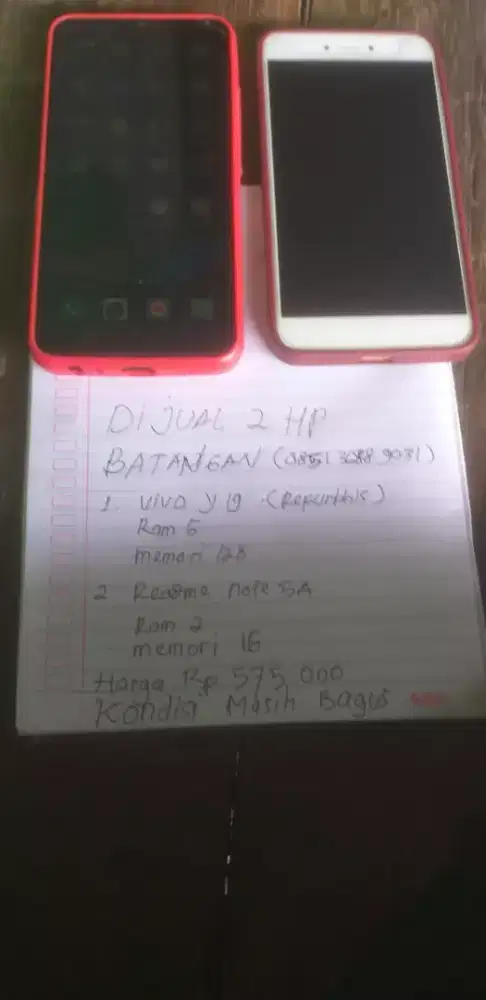 DIJUAL 2 HP
BATANGAN (0851 3088 9031)
1. VIVO Y 19 (Repurthis)
Ram 6
memori 128
2 Readme note 5A
Ram 2
memori 16
Harga Rp 575.000
Kondisi Masih Bagus